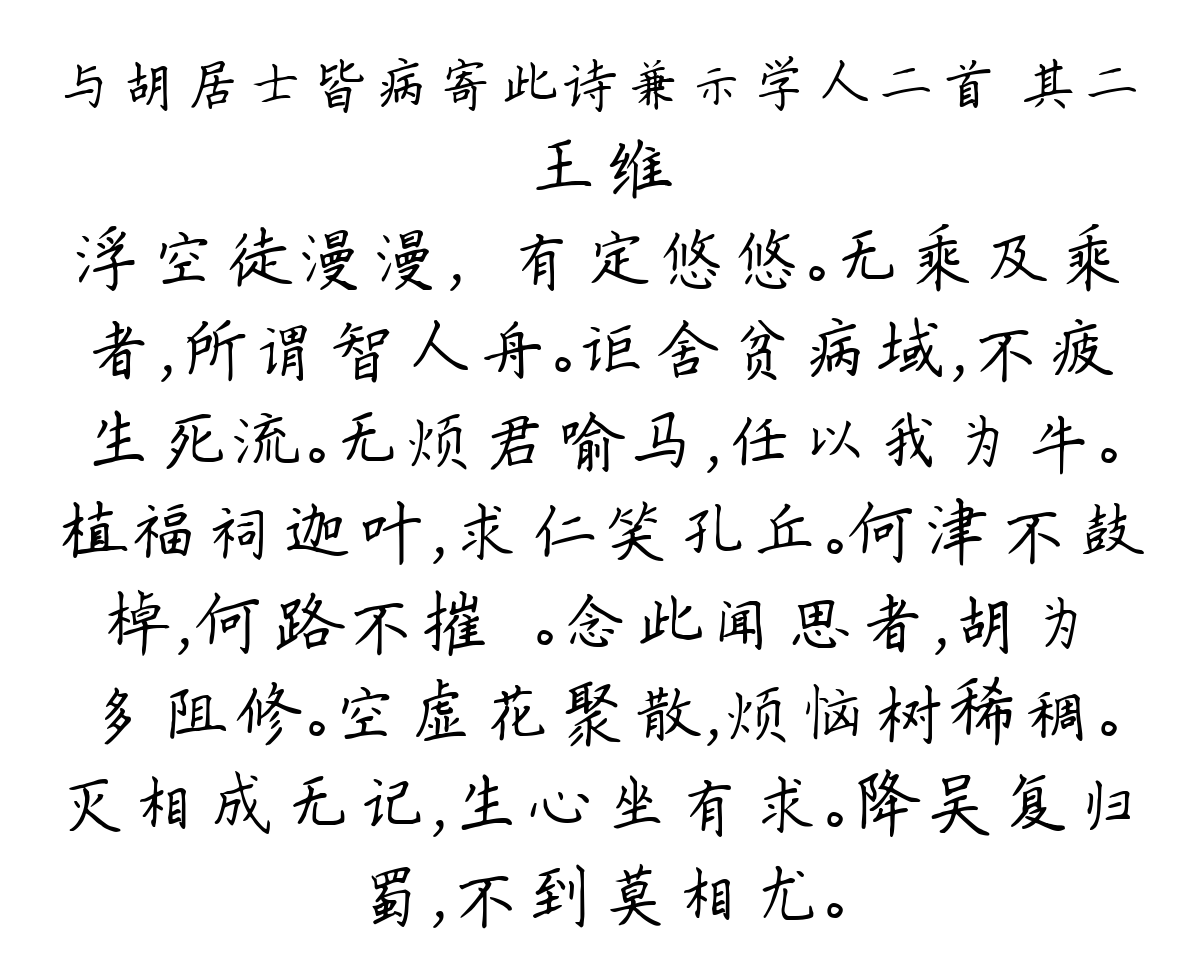 与胡居士皆病寄此诗兼示学人二首 其二
王维
浮空徒漫漫，有定悠悠。无乘及乘
者，所谓智人舟。讵舍贫病域，不疲
生死流。无烦君喻马，任以我为牛。
植福祠迦叶，求仁笑孔丘。何津不鼓
棹，何路不摧 。念此闻思者，胡为
多阻修。空虚花聚散，烦恼树稀稠。
灭相成无记，生心坐有求。降吴复归
蜀，不到莫相尤。